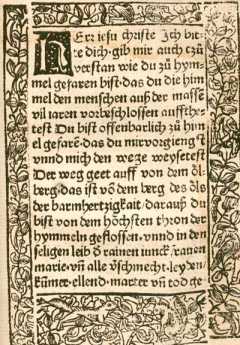 HErr iesu christe Jch bit-
te dich·gib mir auch czů
verstan wie du zů hym-
mel gefaren bist·das du die him
mel den menschen auß der masse
vil iaren vorbeschlossen auffthe
test Du bist offenbarlich zů him
el gefarē·das du mir vorgiengst
vnnd mich den wege weysetest
Der weg geet auff von dem öl-
berg·das ist vō dem berg des öls
der barmhertzigkait·darauß du
bist von dem höchsten thron der
hymmeln geflossen·vnnd in den
seligen leib d rainen iunckfrauen
marie·vñ alle vſchmecht·leyden·
kümer·ellend·marter vñ tod ge